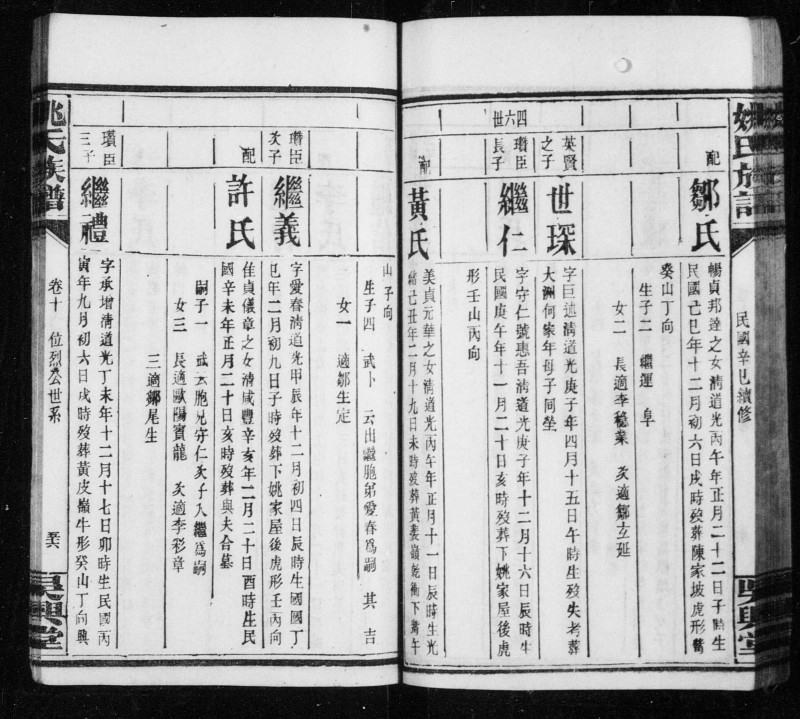 姚氏族譜
民國辛巳續修
吳興堂
配
鄒氏
暢貞邦達之女清道光丙午年正月二十二日子時生
民國己巳年十二月初六日戌時歿葬陳家坡虎形
癸山丁向
生子二 繼運 阜
女二 長適李稔業 次適鄒立延
四六世
英賢之子
世琛
字巨述清道光庚子年四月十五日午時生歿失考葬
大洲何家年母子同塋
瓚臣長子
繼仁
字守仁號惠吾清道光庚子年十二月十六日辰時生
民國庚午年十一月二十日亥時歿葬下姚家屋後虎
形壬山丙向
配
黃氏
美貞元華之女清道光丙午年正月十一日辰時生光
緒己丑年二月十九日未時歿葬黃裴嶺乾衝下 午
山子向
生子四 武卜 云出繼胞弟愛春為嗣 其 吉
女一 適鄒生定
瓚臣次子
繼義
字愛春清道光甲辰年十二月初四日辰時生國國丁
巳年二月初九日子時歿葬下姚家屋後虎形壬丙向
配
許氏
佳貞儀章之女清咸豐辛亥年二月二十日酉時生民
國辛未年正月二十日亥時歿葬與夫合墓
嗣子一 武云胞兄守仁次子入繼為嗣
女三 長適歐陽寶龍 次適李彩章
三適鄒尾生
瓚臣三子
繼禮
字承增清道光丁未年十二月十七日卯時生民國丙
寅年九月初六日戌時歿葬黃皮嶺牛形癸山丁向與
姚氏族譜
卷十 位烈公世系
吳興堂